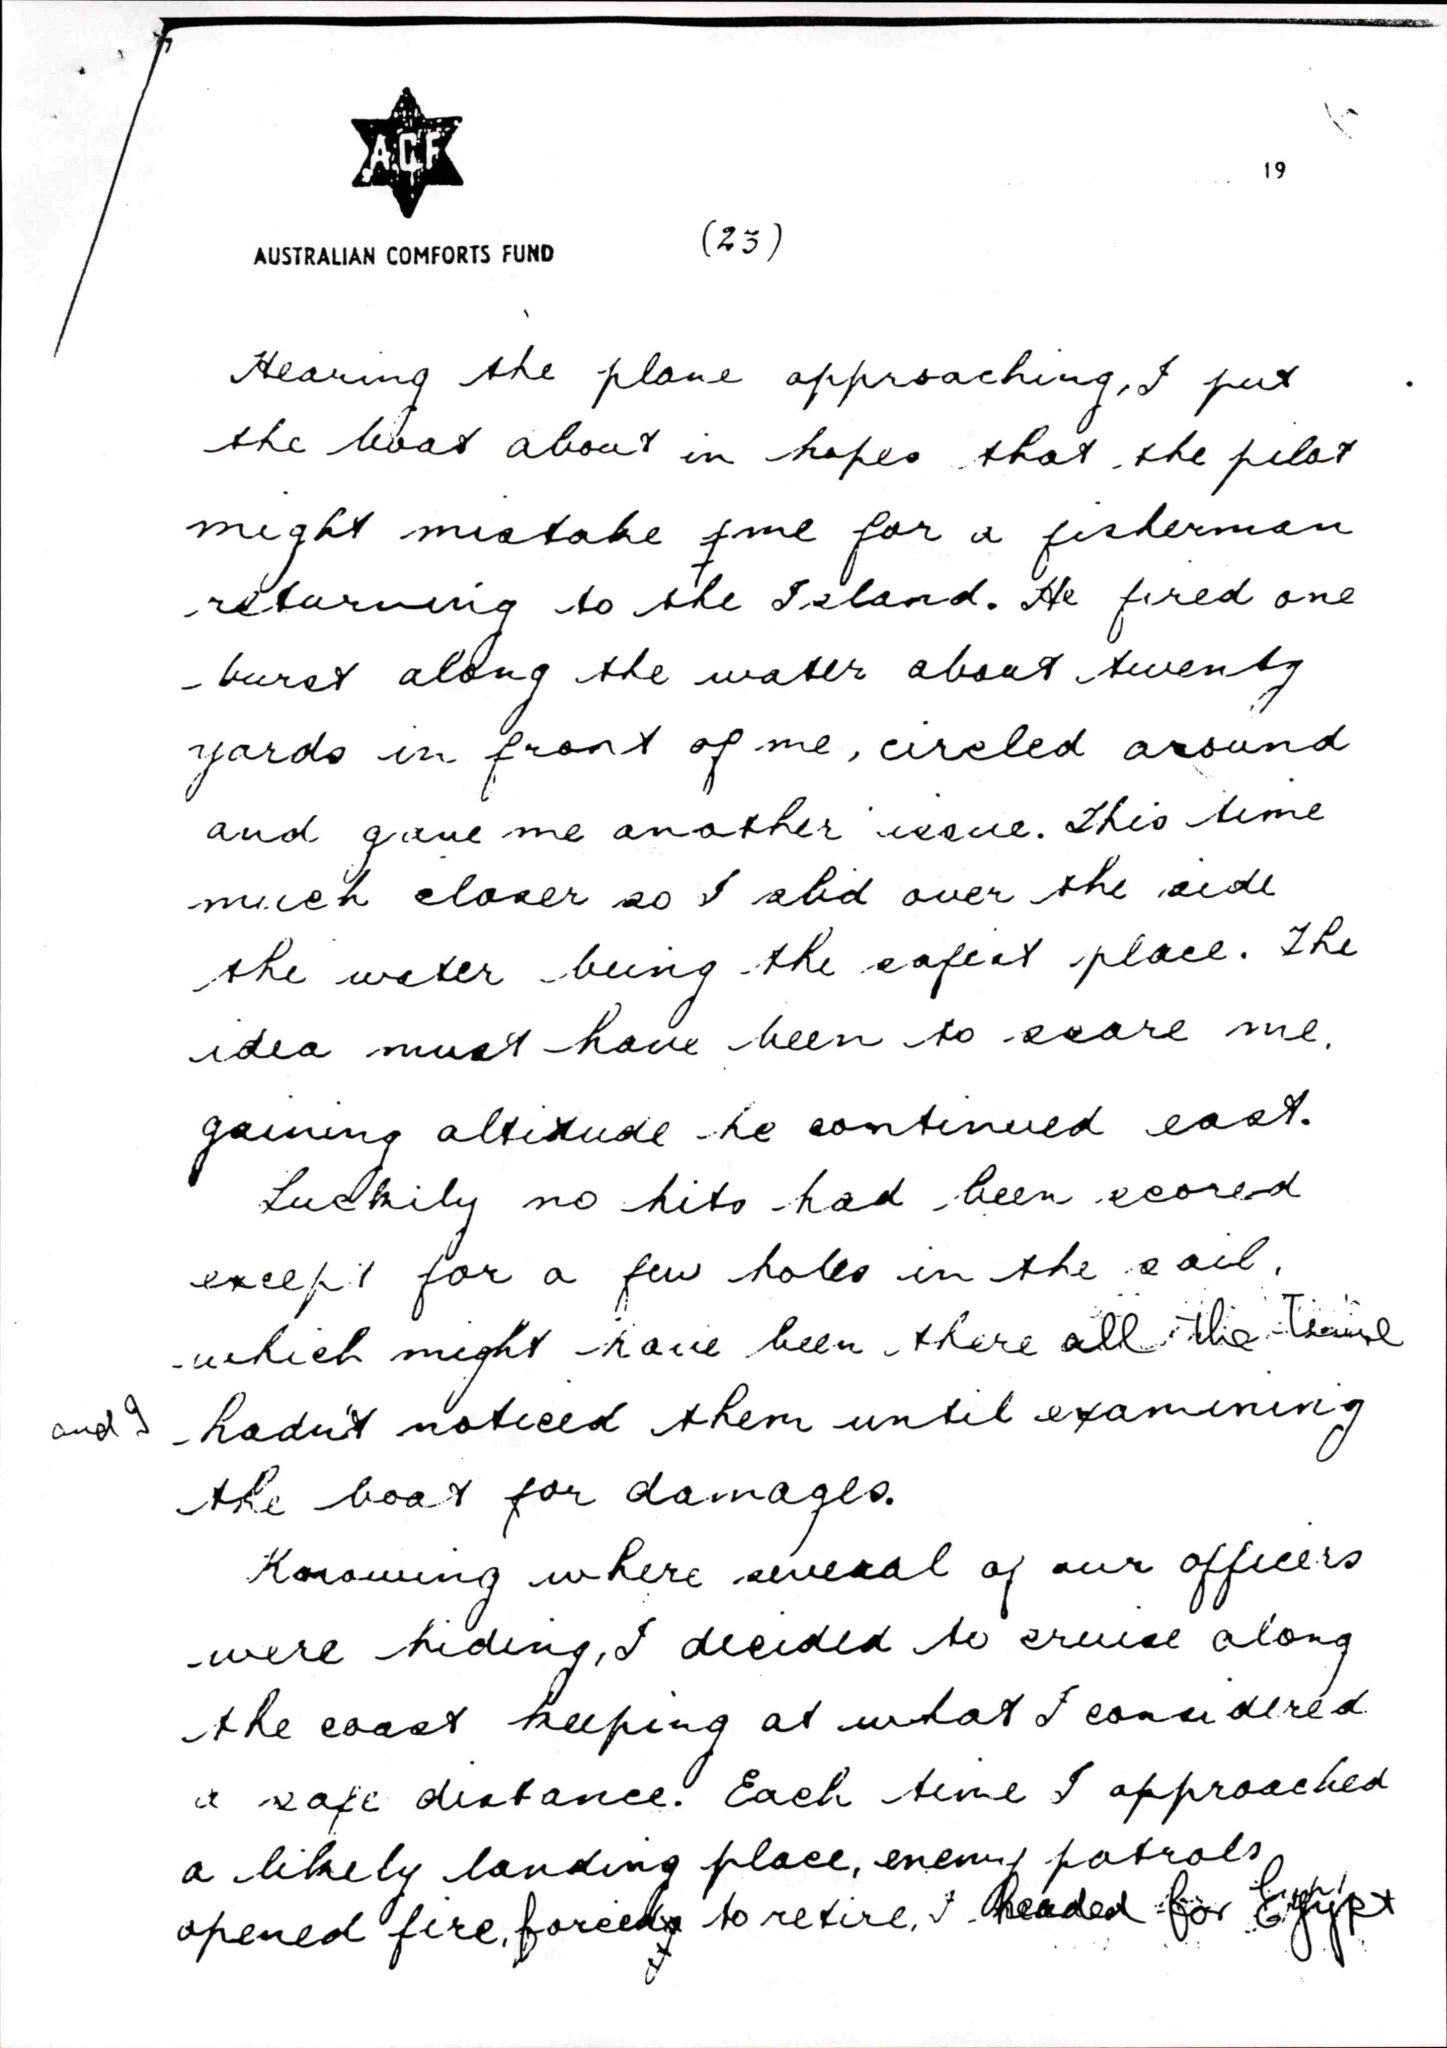 A.C.F
19
AUSTRALIAN COMFORTS FUND
(23)
Hearing the plane approaching, I put
the boat about in hopes that the pilot
might mistake me for a fisherman
returning to the Island. He fired one
burst along the water about twenty
yards in front of me, circled around
and gave me another issue. This time
much closer so I slid over the side
the water being the safest place. The
idea must have been to scare me.
gaining altitude he continued east.
Luckily no hits had been scored
except for a few holes in the sail,
which might have been there all the time
and I hadn't noticed them until examining
the boat for damages.
Knowing where several of our officers
were hiding, I decided to cruise along
the coast keeping at what I considered
a safe distance. Each time I approached
a likely landing place, enemy patrols
opened fire, forced to retire, I headed for Egypt